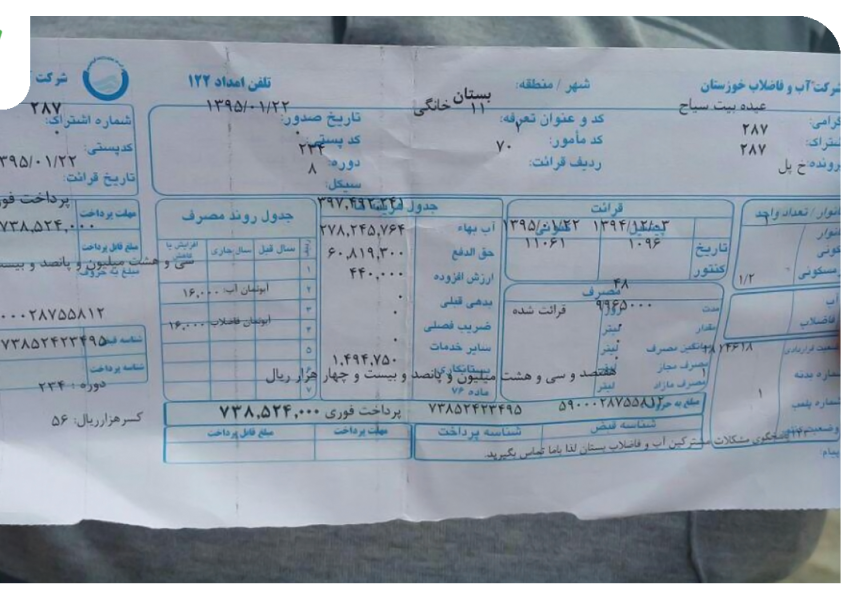 شرکت آب و فاضلاب خوزستان
شهر / منطقه: بستان
تلفن امداد ۱۲۲
شرکت
عبده بیت سیاح
کد و عنوان تعرفه: ۱۱ خانگی
تاریخ صدور: ۱۳۹۵/۰۱/۲۲
شماره اشتراک: ۲۸۷
گرامی:
۲۸۷
کد مأمور: ۲
کد پستی: ۰
کدپستی: ۰
۲۸۷
ردیف قرائت: ۷۰
دوره: ۲۳۴
تاریخ قرائت: ۳۹۵/۰۱/۲۲
خ پل
سیکل: ۸
پرداخت فوری
انوار / تعداد واحد
قرائت
جدول هزینه ها
۳۹۷,۴۹۲,۲۴۱
جدول روند مصرف
مهلت پرداخت
۷۳۸,۵۲۴,۰۰۰
پیشین ۱۳۹۴/۱۲/۰۳
کنونی ۱۳۹۵/۰۱/۲۲
تاریخ
۱۰۹۶
۱۱۰۶۱
کنتور
۱/۲
آب بهاء
۲۷۸,۲۴۵,۷۶۴
حق الدفع
۶۰,۸۱۹,۳۰۰
ارزش افزوده
۴۴۰,۰۰۰
بدهی قبلی
۰
ضریب فصلی
۰
سایر خدمات
۰
بستانکاری
۱,۴۹۴,۷۵۰
ماده ۷۶
سال قبل
سال جاری
افزایش یا کاهش
آبونمان آب: ۱۶,۰۰۰
آبونمان فاضلاب ۱۶,۰۰۰
مبلغ قابل پرداخت
مبلغ به حروف
سی و هشت میلیون و پانصد و بیست
مصرف
مدت
۴۸
روز
مقدار
۹۹۶۵۰۰۰
لیتر
قرائت شده
میانگین مصرف
لیتر
مصرف مجاز
لیتر
مصرف مازاد
لیتر
آب
فاضلاب
شماره بدنه
شماره پلمب
۱
هفتصد و سی و هشت میلیون و پانصد و بیست و چهار هزار ریال
مبلغ به حروف
۵۹۰۰۰۲۸۷۵۵۸۱۲
۷۳۸۵۲۴۲۳۴۹۵
پرداخت فوری
۷۳۸,۵۲۴,۰۰۰
شناسه قبض
شناسه پرداخت
مهلت پرداخت
مبلغ قابل پرداخت
۰۰۰۲۸۷۵۵۸۱۲
شناسه قبض
۷۳۸۵۲۴۲۳۴۹۵
شناسه پرداخت
دوره : ۲۳۴
کسر هزار ریال: ۵۶
پاسخگوی مشکلات مشترکین آب و فاضلاب بستان لذا باما تماس بگیرید.
پیام: